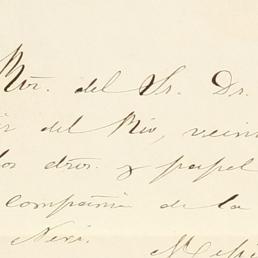 Rvr. del Sr. Dr.
del Rio, vein
dros. y papel
compañia de la
Neri.